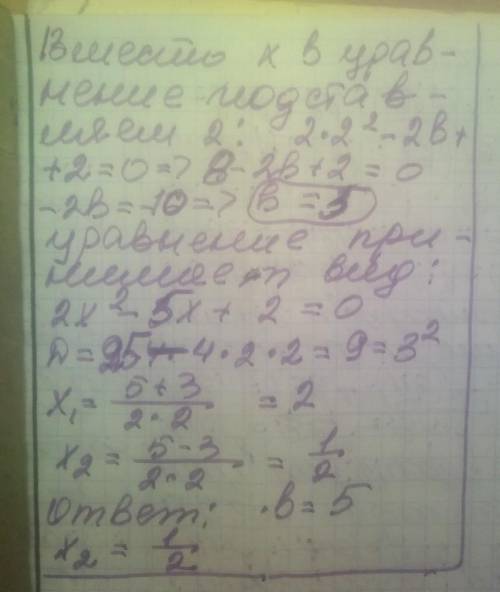 Вместо x в урав-
нение подстав-
ляем 2: 2·2²-2в+
+2=0=> 8-2в+2=0
-2в=-10=> в=5
уравнение при-
нимает вид:
2x²-5x+2=0
Д=25-4·2·2=9=3²
x₁= (5+3)/(2·2) =2
x₂= (5-3)/(2·2) = 1/2
ответ: ·в=5
x₂= 1/2